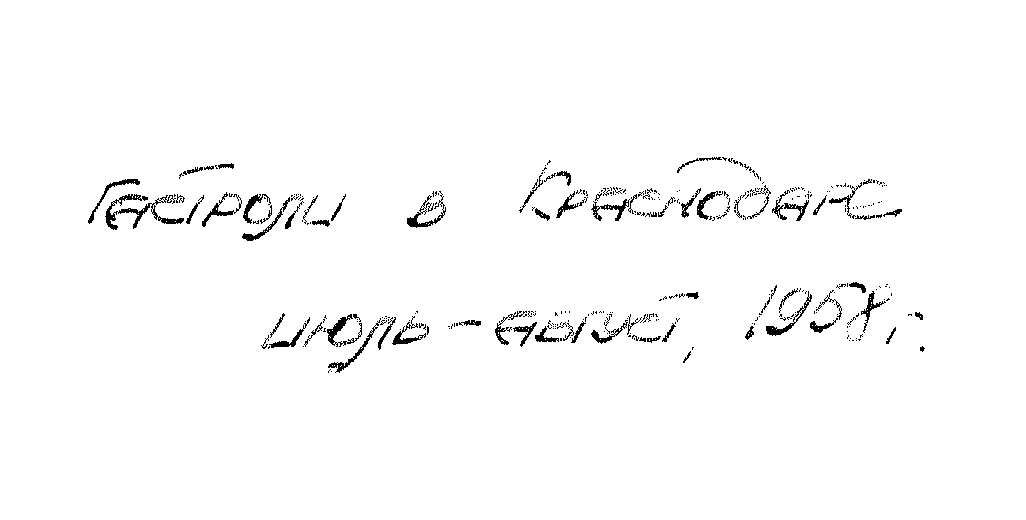 Гастроли в Краснодаре
июль-август, 1958 г.